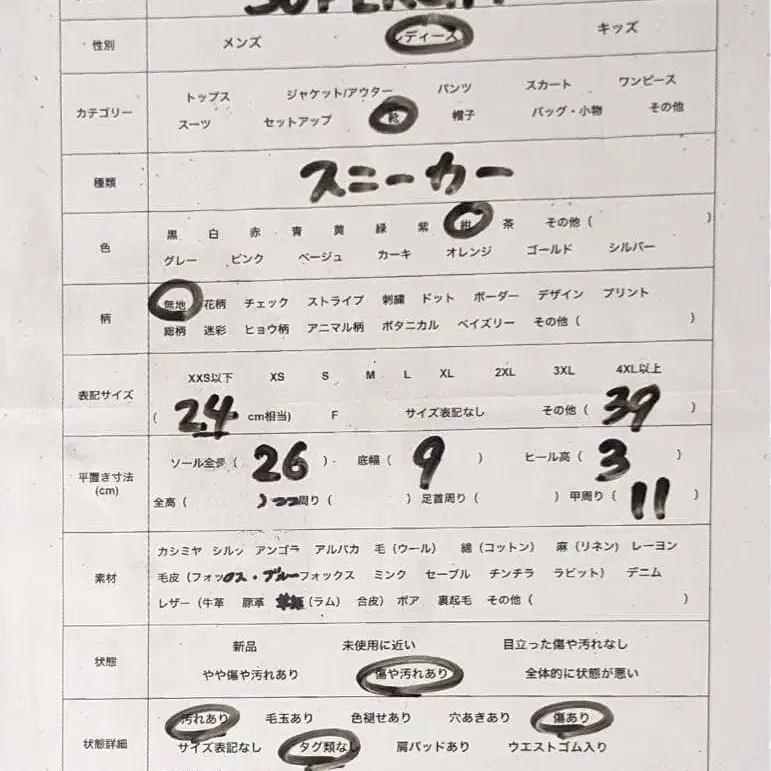 性別 メンズ レディース キッズ
トップス ジャケット/アウター パンツ スカート ワンピース
カテゴリー
スーツ セットアップ 靴 帽子 バッグ・小物 その他
種類 スニーカー
黒 白 赤 青 黄 緑 紫 紺 茶 その他 ( )
色
グレー ピンク ベージュ カーキ オレンジ ゴールド シルバー
無地 花柄 チェック ストライプ 刺繍 ドット ボーダー デザイン プリント
柄
総柄 迷彩 ヒョウ柄 アニマル柄 ボタニカル ペイズリー その他 ( )
XXS以下 XS S M L XL 2XL 3XL 4XL以上
表記サイズ
( 24 cm相当) F サイズ表記なし その他 ( 39 )
ソール全長 ( 26 ) 底幅 ( 9 ) ヒール高 ( 3 )
平置き寸法
(cm)
全高 ( ) つつ周り ( ) 足首周り ( ) 甲周り ( 11 )
カシミヤ シルク アンゴラ アルパカ 毛 (ウール) 綿 (コットン) 麻 (リネン) レーヨン
素材 毛皮 (フォックス・ブルーフォックス ミンク セーブル チンチラ ラビット) デニム
レザー (牛革 豚革 (ラム) 合皮) ボア 裏起毛 その他 ( )
新品 未使用に近い 目立った傷や汚れなし
状態
やや傷や汚れあり 傷や汚れあり 全体的に状態が悪い
汚れあり 毛玉あり 色褪せあり 穴あきあり 傷あり
状態詳細
サイズ表記なし タグ類なし 肩パッドあり ウエストゴム入り